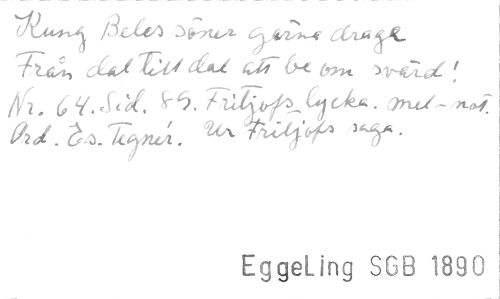 Kung Beles söner gärna draga
Från dal till dal att be om svärd!
Nr. 64. Sid. 89. Fritjofs lycka. mel-not.
Ord. Es. Tegnér. Ur Fritjofs saga.
EggeLing SGB 1890